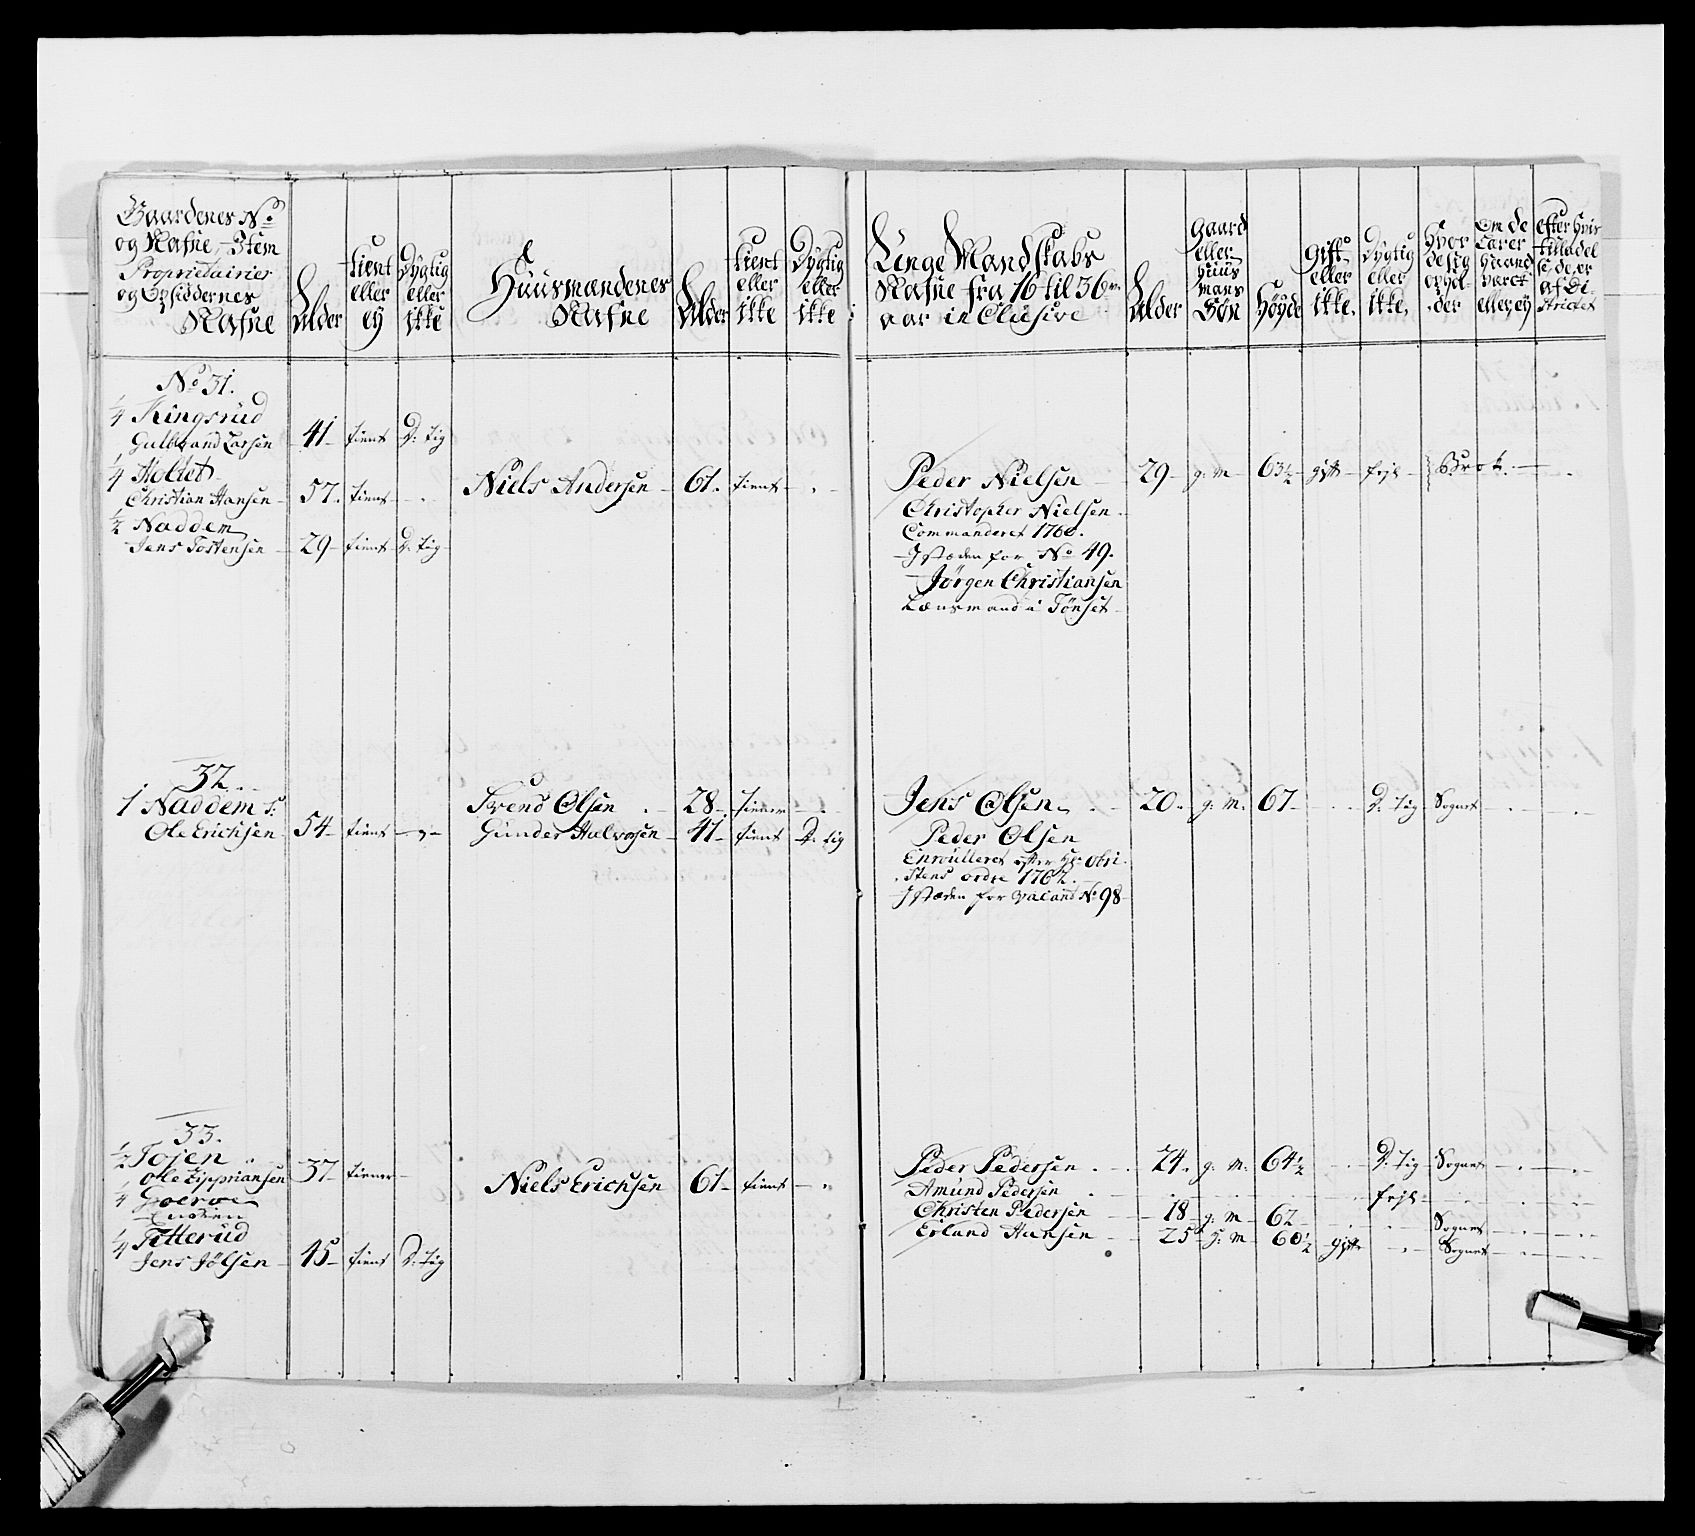 Gaardenes No
og Nafne, Item
Proprietairies
og Opsiddernes
Nafne
Alder
tient
eller
ey
Dygtig
eller
ikke
Huusmændenes
Nafne
Alder
tient
eller
ikke
Dygtig
eller
ikke
Unge Mandskabs
Nafne fra 16 til 36
aar inclusive
Alder
Gaard
eller
Huus
mans
Søn
Høyde
Gift
eller
ikke.
Dygtig
eller
ikke.
Hvor
de sig
ophol-
der
Om de
Haand
været
eller ey
efter hvis
tilladel
se de er
af Di-
strictet
No 31.
1/4 Kingsrud
Gulbrand Larsen 41 tient D: tig
1/4 Holtet
Christian Hansen 57. tient Niels Andersen 61. tient Peder Nielsen 29 g: M 63½ gift fejl Brot.
Christopher Nielsen
Commanderet 1760.
I stæden for No 49.
1/2 Naddem
Jens Tostensen 29 tient D: tig
Jørgen Christiansen
Lænsmand i Tønset
32.
1 Naddem S: Svend Olsen 28 tiener Jens Olsen 20. g: M. 67 D: tig Sognet
Ole Erichsen 54 tient Gunder Halvorsen 41 tient D: tig Peder Olsen
Enroulleret efter Hr: Obri-
stens ordre 1762.
I stæden for vacant No 98
33.
1/2 Tojen
Ole Zipriansen 37 tiener Niels Erichsen 61 tient Peder Pedersen 24. g: M: 64½ D: tig Sognet
Amund Pedersen fejl
1/4 Goerwe
Christen Pedersen 18 g: M 62 Sognet
1/4 Titterud Erland Hansen 25 g: M 60½ gift Sognet
Jens Jølsen 45 tient D: tig